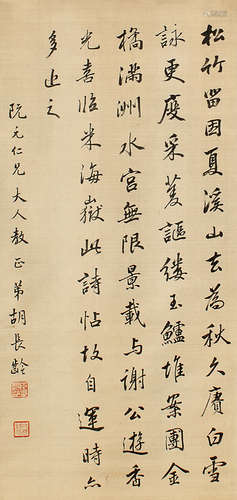 松竹留因夏溪山去為秋久賡白雪
詠更度采菱謳縷玉鱸堆案團金
橘滿洲水宮無限景載与謝公遊香
光喜臨米海嶽此詩帖故自運時亦
多近之
阮元仁兄大人教正弟胡長齡